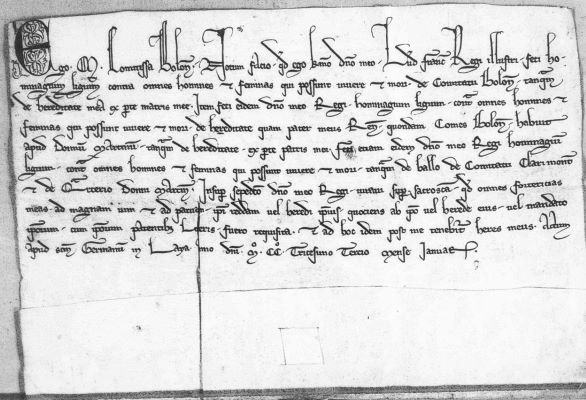 Ego . M . Comitissa Bolon . Notum facio . qd ego kmo dno meo . Lud Franc Regi illustri . feci ho-
minagium ligium contra omnes homines et feminas qui possunt vivere et mori . de Comitatu Bolon . tanqm
de hereditate mea ex pte matris mee . Item feci eidem dno meo Regi . hominagium ligium . contra omnes homines et
feminas qui possunt vivere et mori . de hereditate quam pater meus Ren . quondam Comes Bolon . habuit
apud Domnu Martinu . tanqm de hereditate . ex pte patris mei . Feci etiam eidem dno meo Regi hominagiu
ligium . contra omnes homines et feminas qui possunt vivere et mori . tanqm de ballo de Comitatu Clarimontis
et de Domni Martini . Insup sepedco dno meo Regi . iuravi sup sacrosca . qd omnes fortericias
meas . ad magnam vim et ad parvam ipi reddam vel heredi ipius . quociens ab ipo vel herede eius . vel mandato
ipoium . cum ipoium patentibz Litteris . fuero requisita . et ad hoc idem post me tenebit heres meus . Actum
apud scm Germanu in Laya . Ano dni . Mo . CCo . Tricesimo Tercio mense Januar .